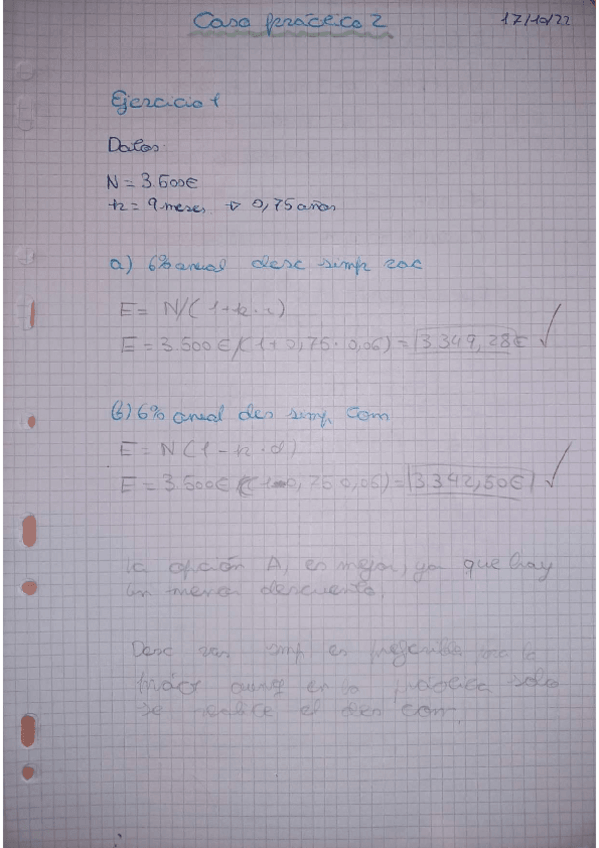 Caso práctico 2
17/10/22
Ejercicio 1
Datos
N = 3.500€
n = 9 meses → 0,75 años
a) 6% anual desc simp rac
E = N/(1+n·i)
E = 3.500€/(1+0,75·0,06) = 3 349,28€ ✓
b) 6% anual des simp com
E = N(1-n·d)
E = 3.500€ (1-0,75 0,06) = 3 342,50€ ✓
la opción A, es mejor, ya que hay
un menor descuento.
Desc simp es preferible
en la práctica solo
se el des com